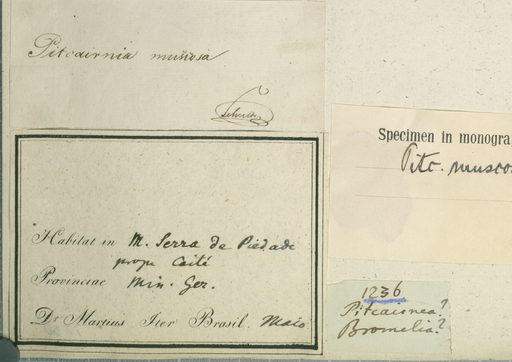 Pitcairnia muscosa
Schult
Habitat in M. Serra da Piedade
prope Caité
Provinciae Min. Ger.
Dr Martius Iter Brasil. Maio
Specimen in monogra
Pitc. muscos
1236
Pitcairnea?
Bromelia?